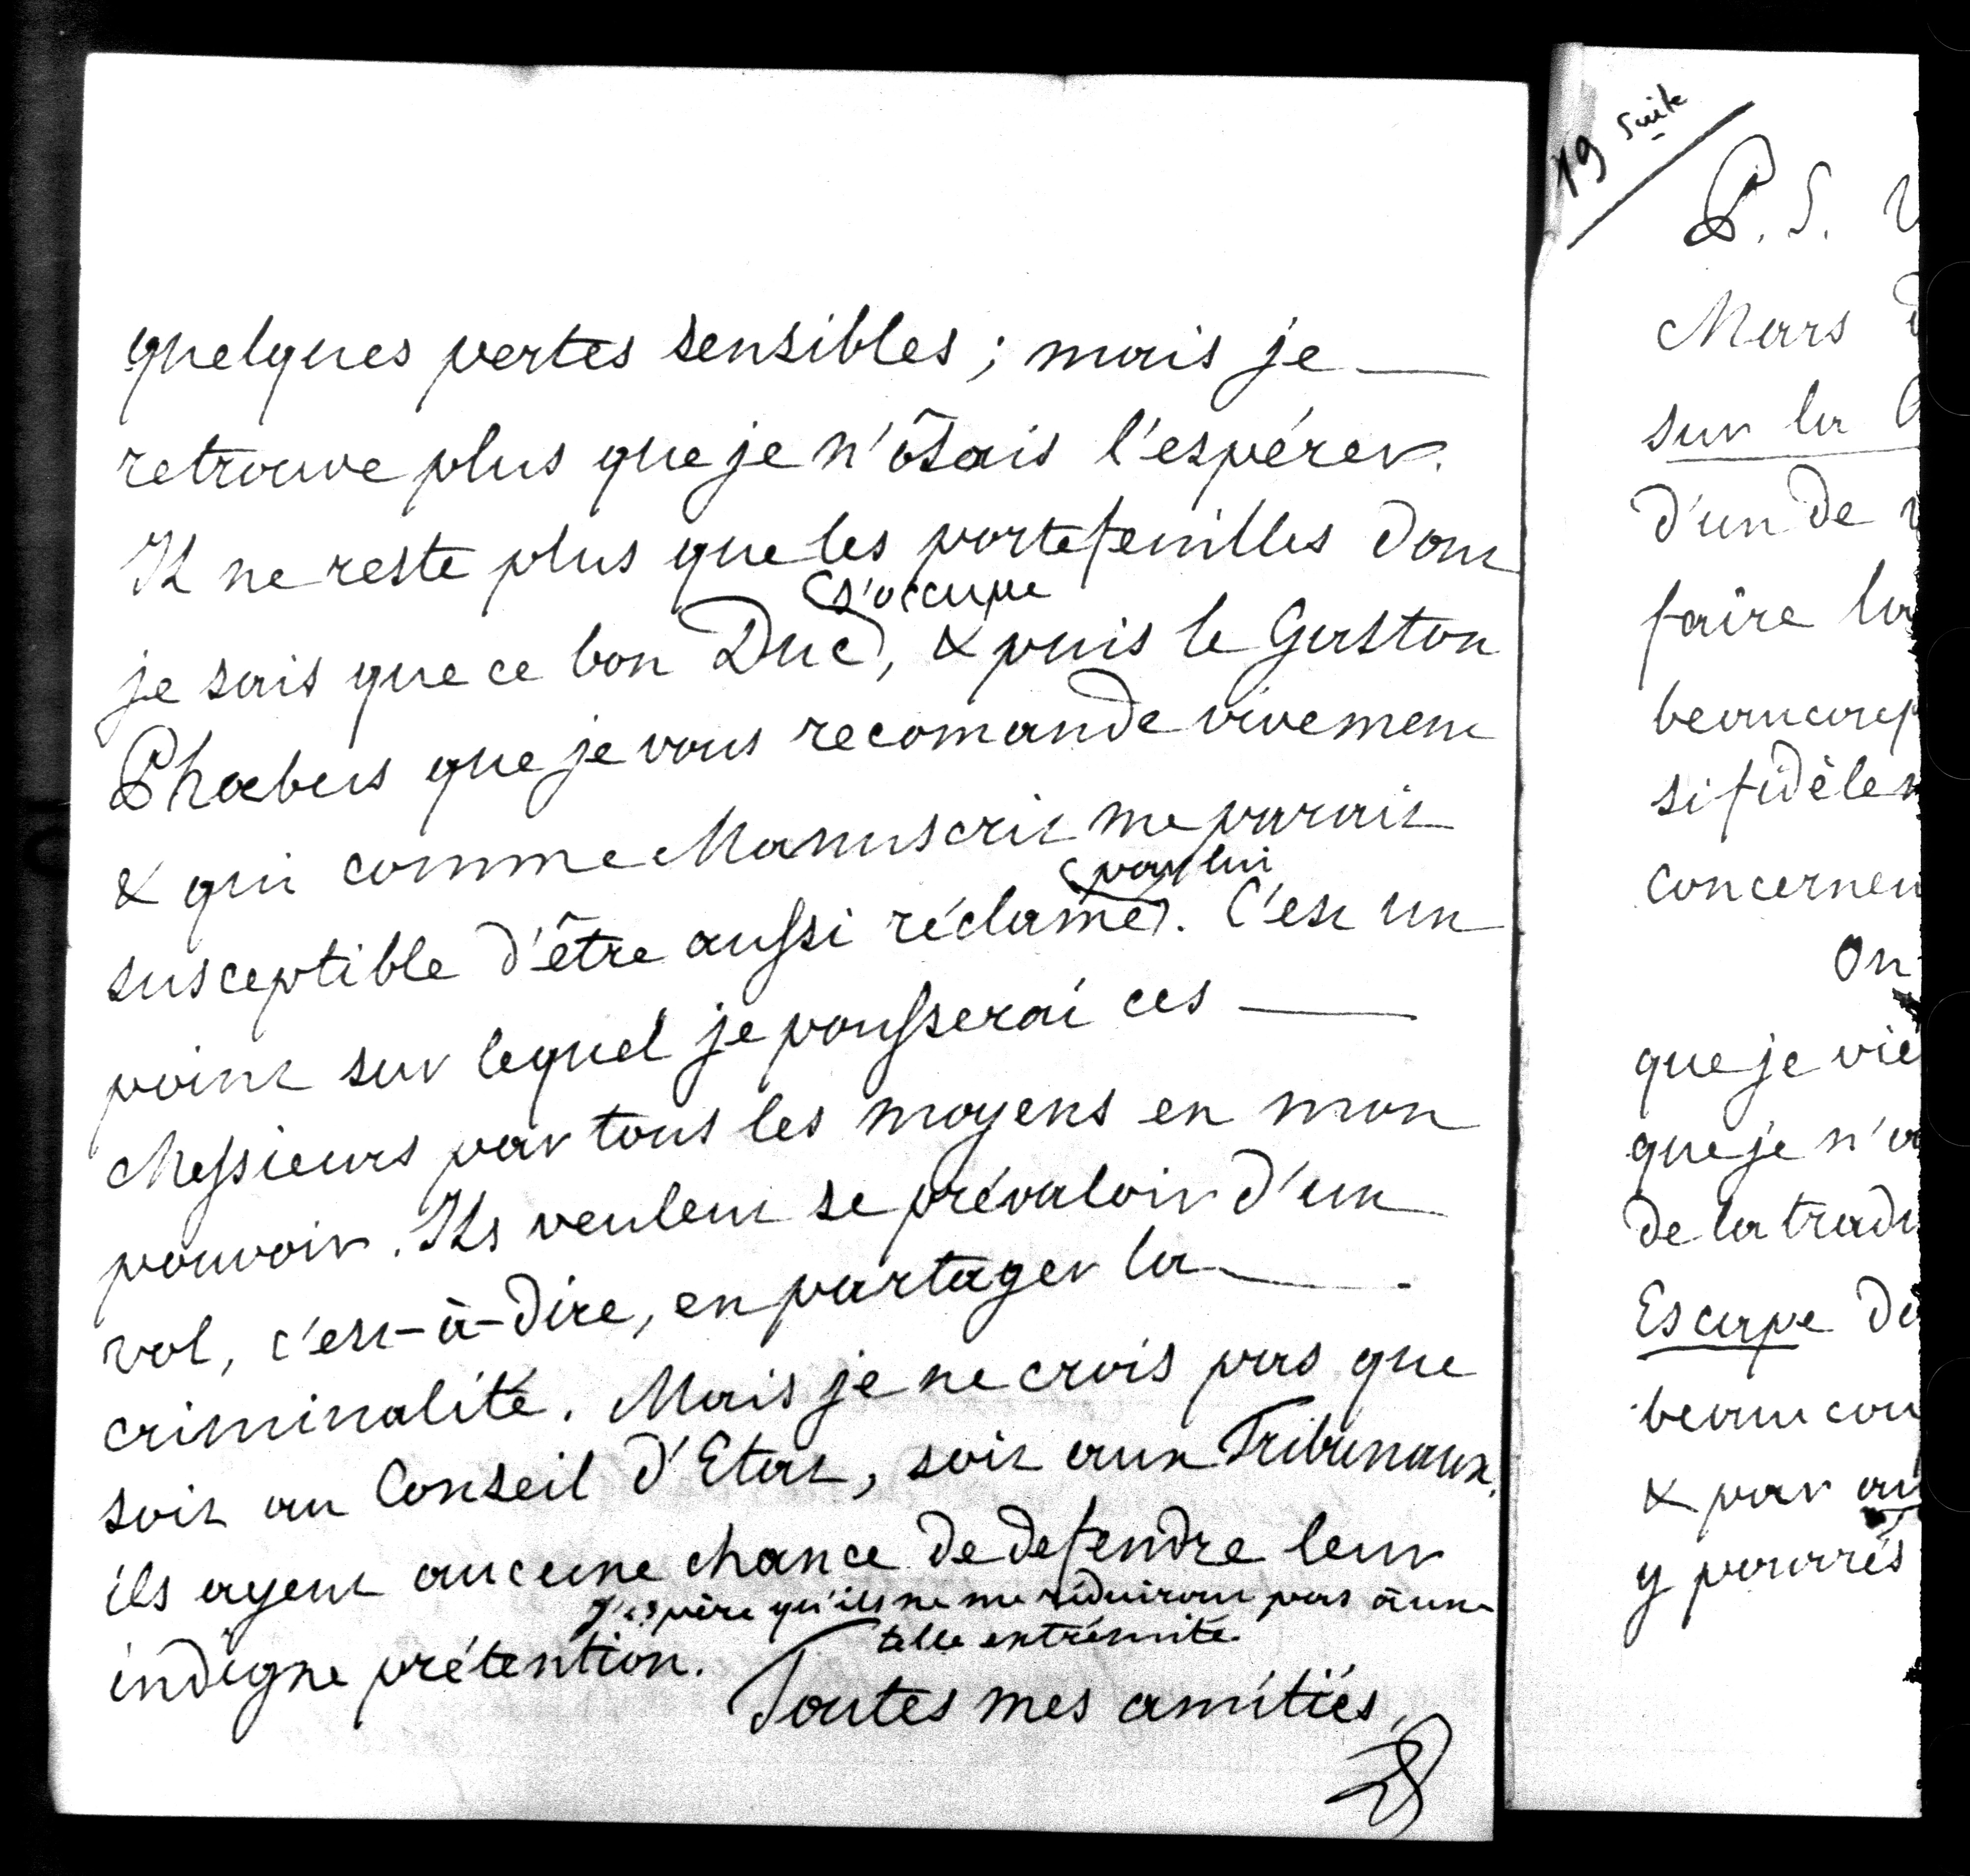 quelques pertes sensibles ; mais je
retrouve plus que je n'ôsais l'espérer.
Il ne reste plus que les portefeuilles dont
s'occupe
je sais que ce bon Duc, & puis le Gaston
Phoebus que je vous recomande vivement
& qui comme Manuscrit me parait
par lui
susceptible d'être aussi réclamé. C'est un
point sur lequel je pousserai ces
Messieurs par tous les moyens en mon
pouvoir. Ils veulent se prévaloir d'un
vol, c'est-à-dire, en partager la
criminalité. Mais je ne crois pas que
soit au Conseil d'Etat, soit aux Tribunaux,
ils ayent aucune chance de defendre leur
j'espère qu'ils ne me réduiront pas à une
telle extrémité.
indigne prétention.
Toutes mes amitiés,
19 Suite
P. S.
Mars
sur la
d'un de
faire
beaucoup
si fidèle
concernen
On
que je vie
que je n'a
de la tradu
Escape
beaucou
& par au
y pourrés